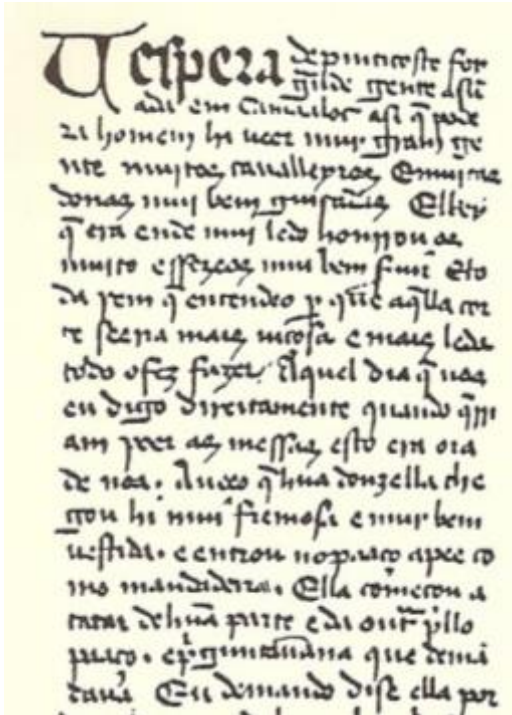 Vespera de pinticoste foy
grãde gente asũ
ada em Camaaloc asi q̃ pode
ra homem hi ueer mui gram ge
nte muitos cavalleyros E muitas
donas mui bem guisadas Elrey
q̃ era ende mui ledo honrrou os
muito e feze os mui bem seruir E to
da rem q̃ entendeo ꝑ que aq̃lla cor
te seeria mais uiçosa e mais leda
todo o fez fazer. Aquel dia q̃ uos
eu digo direitamente quando q̃ri
am poer as messas esto era ora
de noa. Aueeo q̃ hua donzella che
gou hi mui fremosa e muy bem
uestida. e entrou no paaço a pee co
mo mandadeira. Ella começou a
catar de hũa parte e da outra pello
paaço. e p̃guntauana que demã
daua Eu demando disse ella por